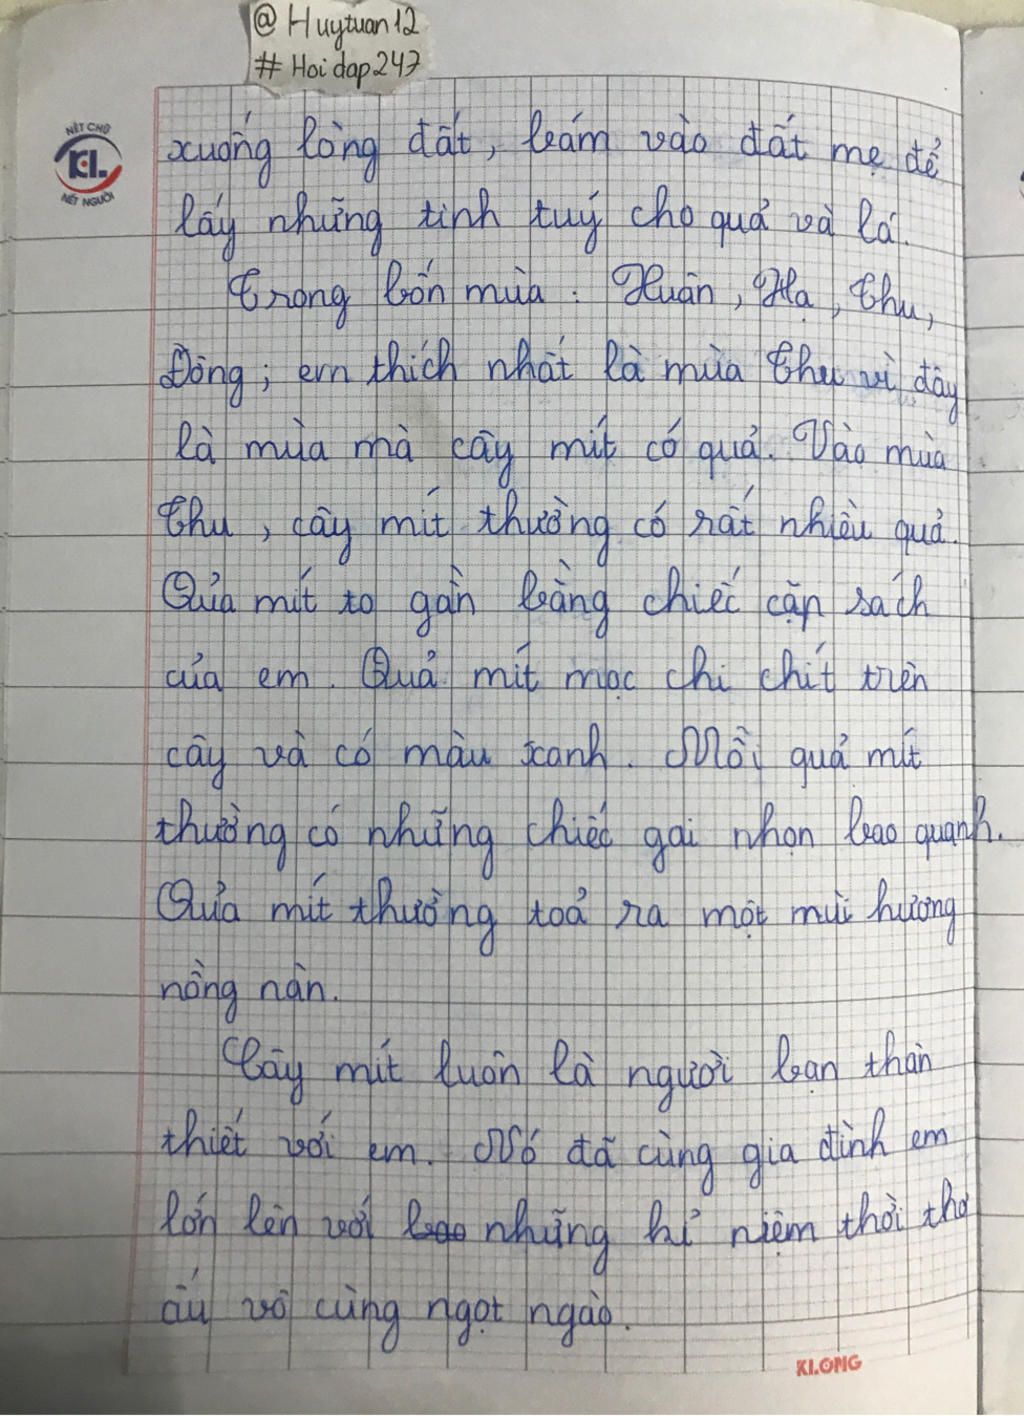 @ Huytuan12
# Hoidap247
NÉT CHỮ
KL
NẾT NGƯỜI
xuống lòng đất, bám vào đất mẹ để
lấy những tinh tuý cho quả và lá.
Trong bốn mùa : Xuân, Hạ, Thu,
Đông; em thích nhất là mùa Thu vì đây
là mùa mà cây mít có quả. Vào mùa
Thu, cây mít thường có rất nhiều quả.
Quả mít to gần bằng chiếc cặp sách
của em. Quả mít mọc chi chít trên
cây và có màu xanh. Mỗi quả mít
thường có những chiếc gai nhọn bao quanh.
Quả mít thường toả ra một mùi hương
nồng nàn.
Cây mít luôn là người bạn thân
thiết với em. Nó đã cùng gia đình em
lớn lên với bao những kỉ niệm thời thơ
ấu vô cùng ngọt ngào.
KLONG